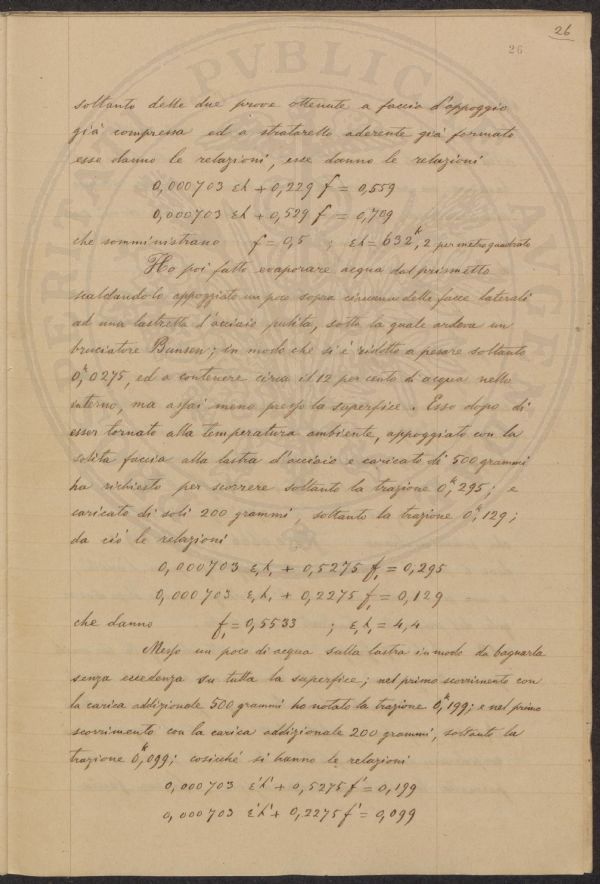 26
26
soltanto delle due prove ottenute a faccia d'appoggio
già compressa ed a stratarello aderente già formato
esse danno le relazioni, esse danno le relazioni
0,000703 εh + 0,229 f = 0,559
0,000703 εh + 0,529 f = 0,709
che somministrano f = 0,5 ; εh = 632,k2 per metro quadrato
Ho poi fatto evaporare acqua dal prismetto
scaldandolo appoggiato un poco sopra ciascuna delle facce laterali
ad una lastretta d'acciaio pulita, sotto la quale ardeva un
bruciatore Bunsen; in modo che si è ridotto a pesare soltanto
0,k0275, ed a contenere circa il 12 per cento di acqua nello
interno, ma assai meno presso la superfice. Esso dopo di
esser tornato alla temperatura ambiente, appoggiato con la
solita faccia alla lastra d'acciaio e caricato di 500 grammi
ha richiesto per scorrere soltanto la trazione 0,k295; e
caricato di soli 200 grammi, soltanto la trazione 0,k129;
da ciò le relazioni
0,000703 ε,h, + 0,5275 f, = 0,295
0,000703 ε,h, + 0,2275 f, = 0,129
che danno f, = 0,5533 ; ε,h, = 4,4
Messo un poco di acqua sulla lastra in modo da bagnarla
senza eccedenza su tutta la superfice; nel primo scorrimento con
la carica addizionale 500 grammi ho notato la trazione 0,k199; e nel primo
scorrimento con la carica addizionale 200 grammi, soltanto la
trazione 0,k099; cosicché si hanno le relazioni
0,000703 ε'h' + 0,5275 f' = 0,199
0,000703 ε'h' + 0,2275 f' = 0,099